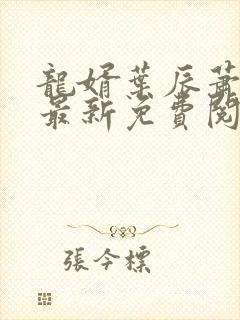 龍婿葉辰蕭
最新免費閱
張今標